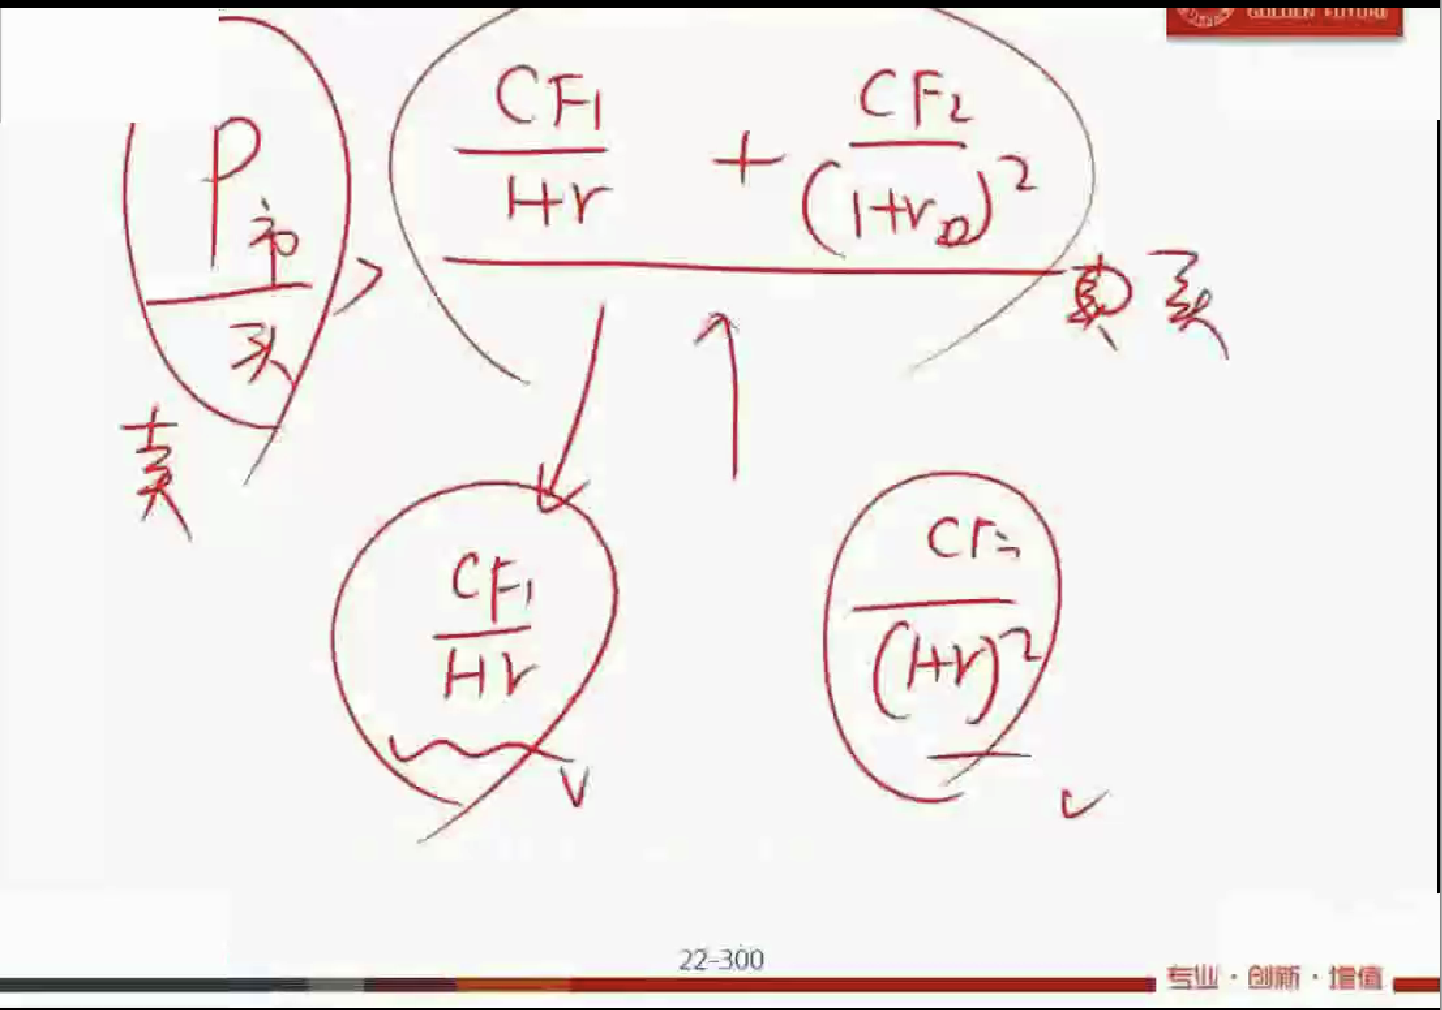 GOLDEN FUTURE
P市 > CF1/1+r + CF2/(1+r)²
买
卖
买
CF1/1+r
CF2/(1+r)²
22-300
专业·创新·增值